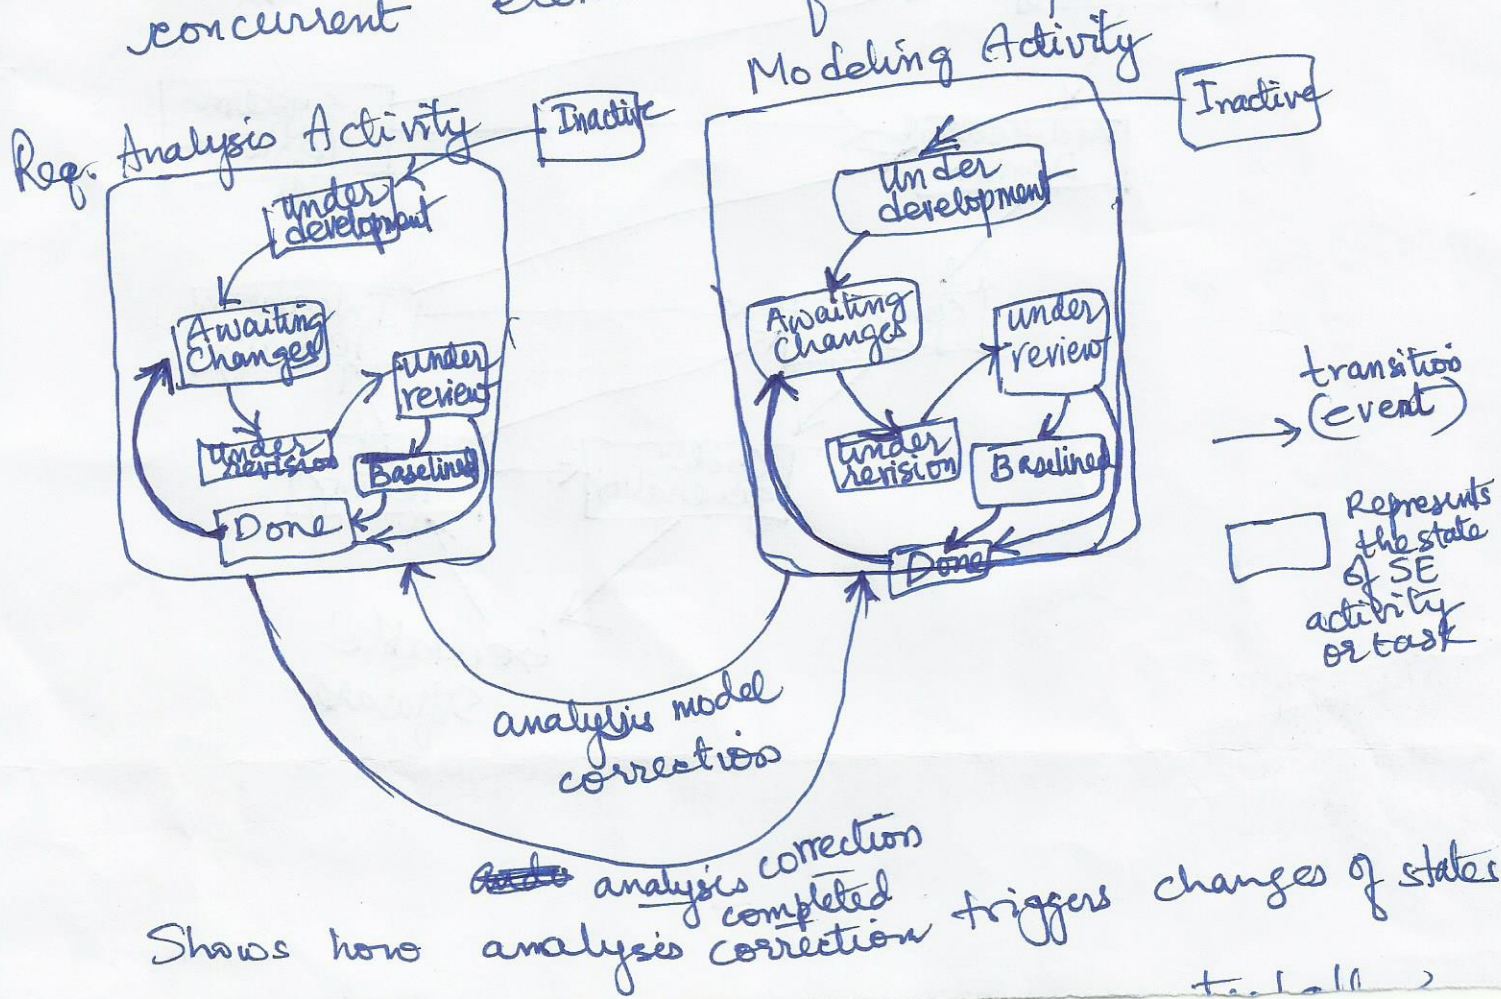 concurrent
Modeling Activity
Inactive
Req. Analysis Activity
Inactive
under
development
Awaiting
changes
under
review
under
revision
Baselined
Done
under
development
Awaiting
changes
under
review
under
revision
Baselined
Done
transition
(event)
Represents
the state
of SE
activity
or task
analysis model
correction
analysis correction
completed
Shows how analysis correction triggers changes of states